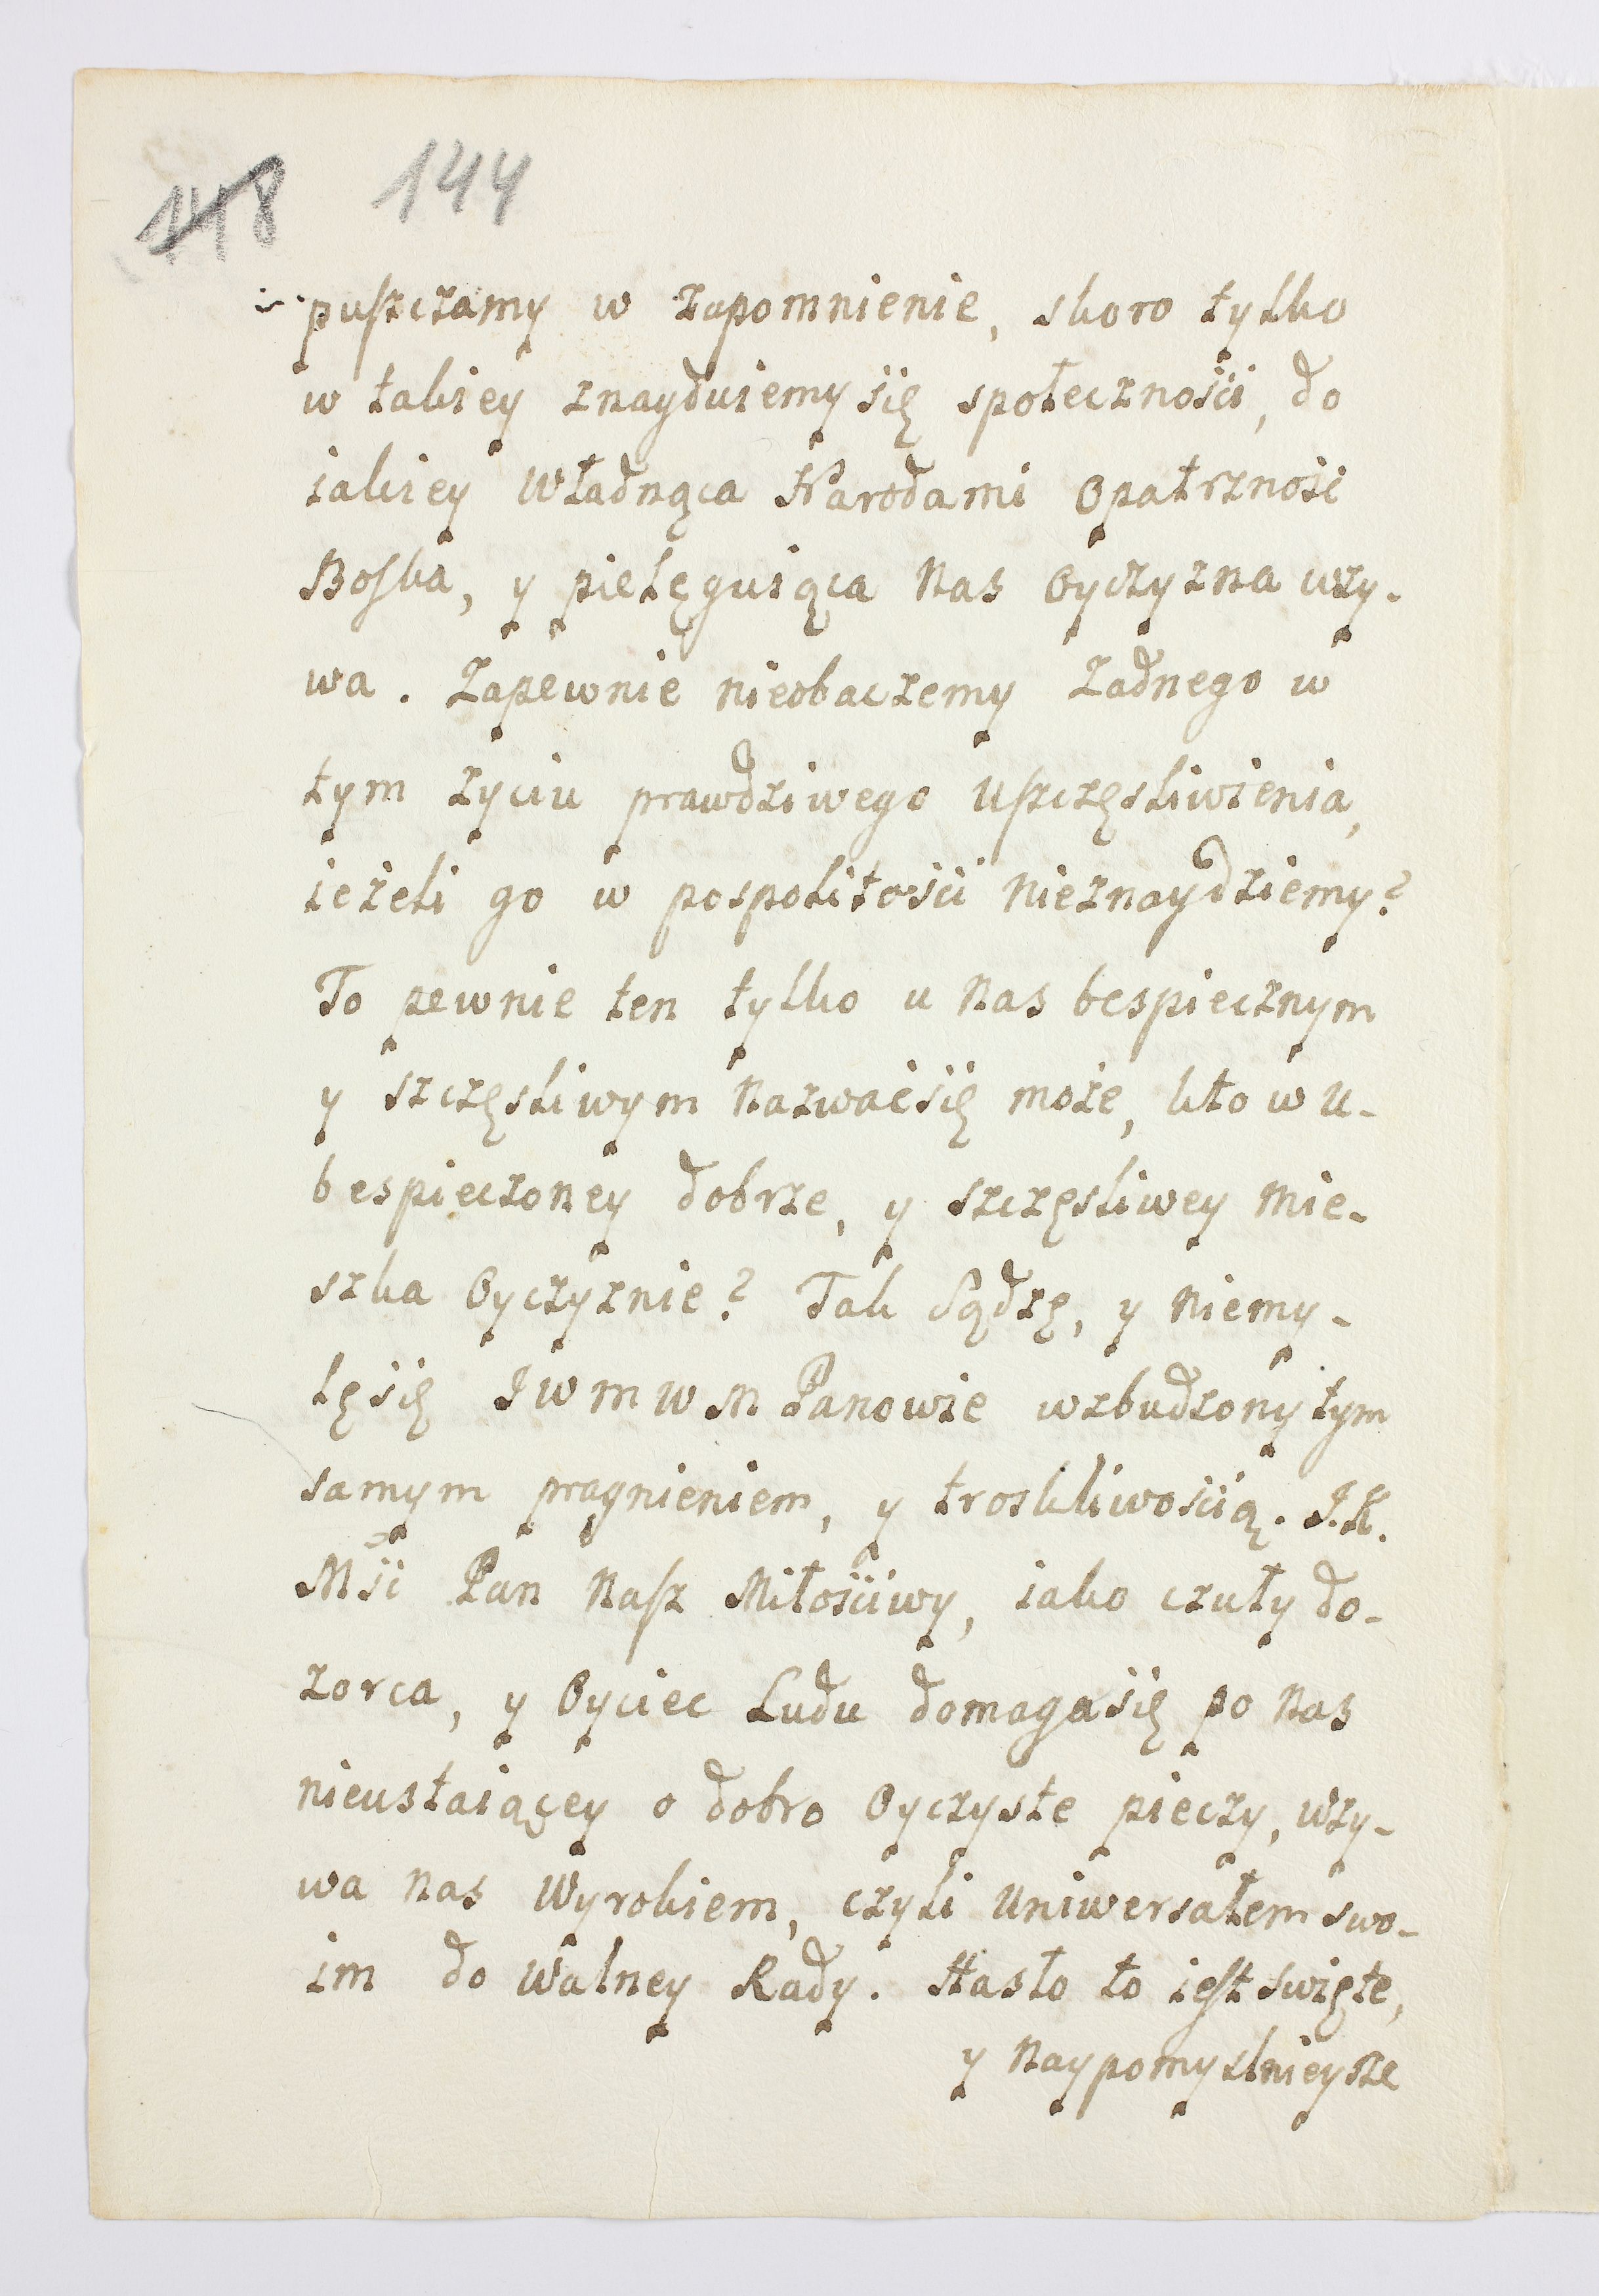 148 144
puszczamy w zapomnienie, skoro tylko
w takiey znayduiemy się społeczności, do
iakiey Władnąca Narodami Opatrzność
Boska, y pielęguiąca nas Oyczyzna wzy-
wa. Zapewnie nieobaczemy Zadnego w
tym zyciu prawdziwego uszczęsliwienia,
ieżeli go w pospolitości nieznaydziemy?
To pewnie ten tylko u nas bespiecznym
y szczęsliwym nazwać się może, kto w u-
bespieczoney dobrze, y szczęsliwey mie-
szka Oyczyznie? Tak Sądzę, y niemy-
lę się J W M W M Panowie wzbudzony tym
samym pragnieniem, y troskliwością. J.K.
Mść Pan nasz Miłościwy, iako czuły do-
zorca, y Oyciec Ludu domaga się po nas
nieustaiącey o dobro Oyczyste pieczy, wzy-
wa nas Wyrokiem, czyli Uniwersałem swo-
im do Walney Rady. Hasło to iest święte,
y naypomyslnieysze